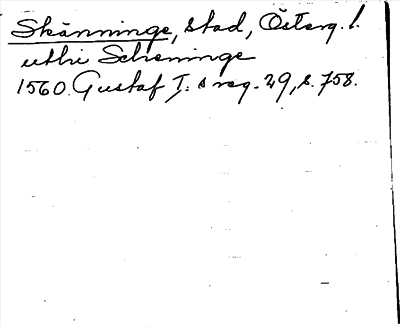 Skänninge, stad, Österg. l.
uthi Scheninge
1560. Gustaf I:s reg. 29, s. 758.